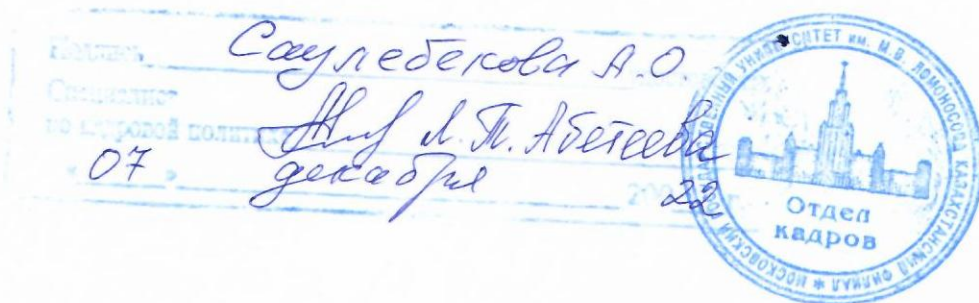 Подпись Саулебекова А.О.
Специалист
по кадровой политике Л.Т. Абетеева
« 07 » декабря 2022
МОСКОВСКИЙ ГОСУДАРСТВЕННЫЙ УНИВЕРСИТЕТ им. М.В. ЛОМОНОСОВ КАЗАХСТАНСКИЙ ФИЛИАЛ *
Отдел
кадров